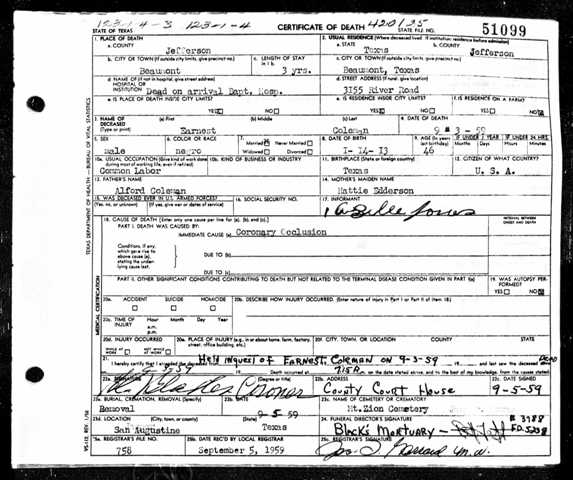 123-1-4-3 123-1-4 CERTIFICATE OF DEATH 420125
STATE OF TEXAS STATE FILE NO. 51099
1. PLACE OF DEATH 2. USUAL RESIDENCE (Where deceased lived. If institution: residence before admission)
a. COUNTY Jefferson a. STATE Texas b. COUNTY Jefferson
b. CITY OR TOWN (If outside city limits, give precinct no.) c. LENGTH OF STAY in 1 b. c. CITY OR TOWN (If outside city limits, give precinct no.)
Beaumont 3 yrs. Beaumont, Texas
d. NAME OF (If not in hospital, give street address) HOSPITAL OR INSTITUTION d. STREET ADDRESS (If rural, give location)
Dead on arrival Bapt. Hosp. 3155 River Road
e. IS PLACE OF DEATH INSIDE CITY LIMITS? YES NO e. IS RESIDENCE INSIDE CITY LIMITS? YES NO f. IS RESIDENCE ON A FARM? YES NO
3. NAME OF DECEASED (Type or print) (a) First (b) Middle (c) Last 4. DATE OF DEATH
Earnest Coleman 9-3-59
5. SEX 6. COLOR OR RACE 7. Married Never Married Widowed Divorced 8. DATE OF BIRTH 9. AGE (In years last birthday) IF UNDER 1 YEAR Months Days IF UNDER 24 HRS. Hours Min.
male negro 1-14-13 46
10a. USUAL OCCUPATION (Give kind of work done during most of working life, even if retired) 10b. KIND OF BUSINESS OR INDUSTRY 11. BIRTHPLACE (State or foreign country) 12. CITIZEN OF WHAT COUNTRY?
Common Labor Texas U. S. A.
13. FATHER'S NAME 14. MOTHER'S MAIDEN NAME
Alford Coleman Mattie Edderson
15. WAS DECEASED EVER IN U.S. ARMED FORCES? 16. SOCIAL SECURITY NO. 17. INFORMANT
(Yes, no, or unknown) (If yes, give war or dates of service) Jones
18. CAUSE OF DEATH [Enter only one cause per line for (a), (b), and (c).] INTERVAL BETWEEN ONSET AND DEATH
PART I. DEATH WAS CAUSED BY:
IMMEDIATE CAUSE (a) Coronary Occlusion
Conditions, if any, which gave rise to above cause (a), stating the underlying cause last.
DUE TO (b)
DUE TO (c)
PART II. OTHER SIGNIFICANT CONDITIONS CONTRIBUTING TO DEATH BUT NOT RELATED TO THE TERMINAL DISEASE CONDITION GIVEN IN PART I(a) 19. WAS AUTOPSY PERFORMED? YES NO
20a. ACCIDENT SUICIDE HOMICIDE 20b. DESCRIBE HOW INJURY OCCURRED. (Enter nature of injury in Part I or Part II of item 18.)
20c. TIME OF INJURY Hour a.m. p.m. Month Day Year
20d. INJURY OCCURRED WHILE AT WORK NOT WHILE AT WORK 20e. PLACE OF INJURY (e.g., in or about home, farm, factory, street, office building, etc.) 20f. CITY, TOWN, OR LOCATION COUNTY STATE
21. Held inquest of EARNEST COLEMAN on 9-3-59 and last saw the deceased DEAD
Death occurred at 715A m. on the date stated above, and to the best of my knowledge, from the causes stated.
22a. SIGNATURE (Degree or title) 22b. ADDRESS 22c. DATE SIGNED
Coroner County Court House 9-5-59
23a. BURIAL, CREMATION, REMOVAL (Specify) 23b. DATE 23c. NAME OF CEMETERY OR CREMATORY
Removal 9-5-59 Mt. Zion Cemetery
23d. LOCATION (City, town, or county) (State) 24. FUNERAL DIRECTOR'S SIGNATURE # 3188
San Augustine Texas Black's Mortuary - F.D. 5238
25a. REGISTRAR'S FILE NO. 25b. DATE REC'D BY LOCAL REGISTRAR 25c. REGISTRAR'S SIGNATURE
758 September 5, 1959
TEXAS DEPARTMENT OF HEALTH — BUREAU OF VITAL STATISTICS
MEDICAL CERTIFICATION